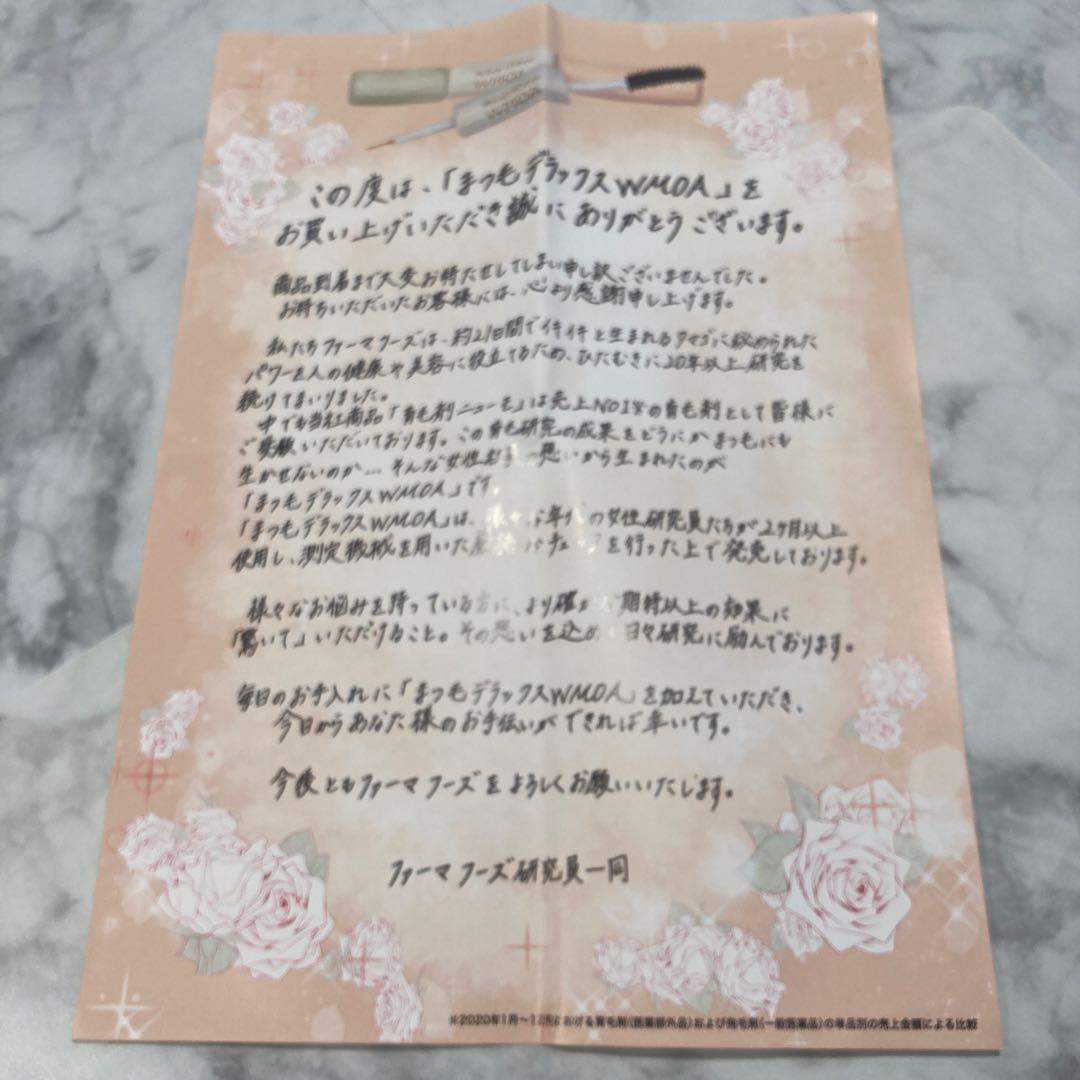 WMOA
この度は、「まつ毛デラックスWMOA」を
お買い上げいただき誠にありがとうございます。
商品到着まで大変お待たせしてしまい申し訳ございませんでした。
お待ちいただいたお客様には、心より感謝申し上げます。
私たちファーマフーズは、約21日間でイキイキと生まれるタマゴに秘められた
パワーを人の健康や美容に役立てるため、ひたむきに20年以上研究を
続けてまいりました。
中でも当社商品「育毛剤ニューモ」は売上NO1※の育毛剤として皆様に
ご愛顧いただいております。この育毛研究の成果をどうにかまつ毛にも
生かせないのか…そんな女性 思いから生まれたのが
「まつ毛デラックスWMOA」です。
「まつ毛デラックスWMOA」は、様々な年代の女性研究員たちが2ヶ月以上
使用し、測定機械を用いた チェックを行った上で発売しております。
様々なお悩みを持っている方に、より確かな期待以上の効果に
「驚いて」いただけること。その思いを込め 日々研究に励んでおります。
毎日のお手入れに「まつ毛デラックスWMOA」を加えていただき、
今日からあなた様のお手伝いができれば幸いです。
今後ともファーマフーズをよろしくお願いいたします。
ファーマフーズ研究員一同
※2020年1月~12月における育毛剤(医薬部外品)および発毛剤(一般医薬品)の単品別の売上金額による比較